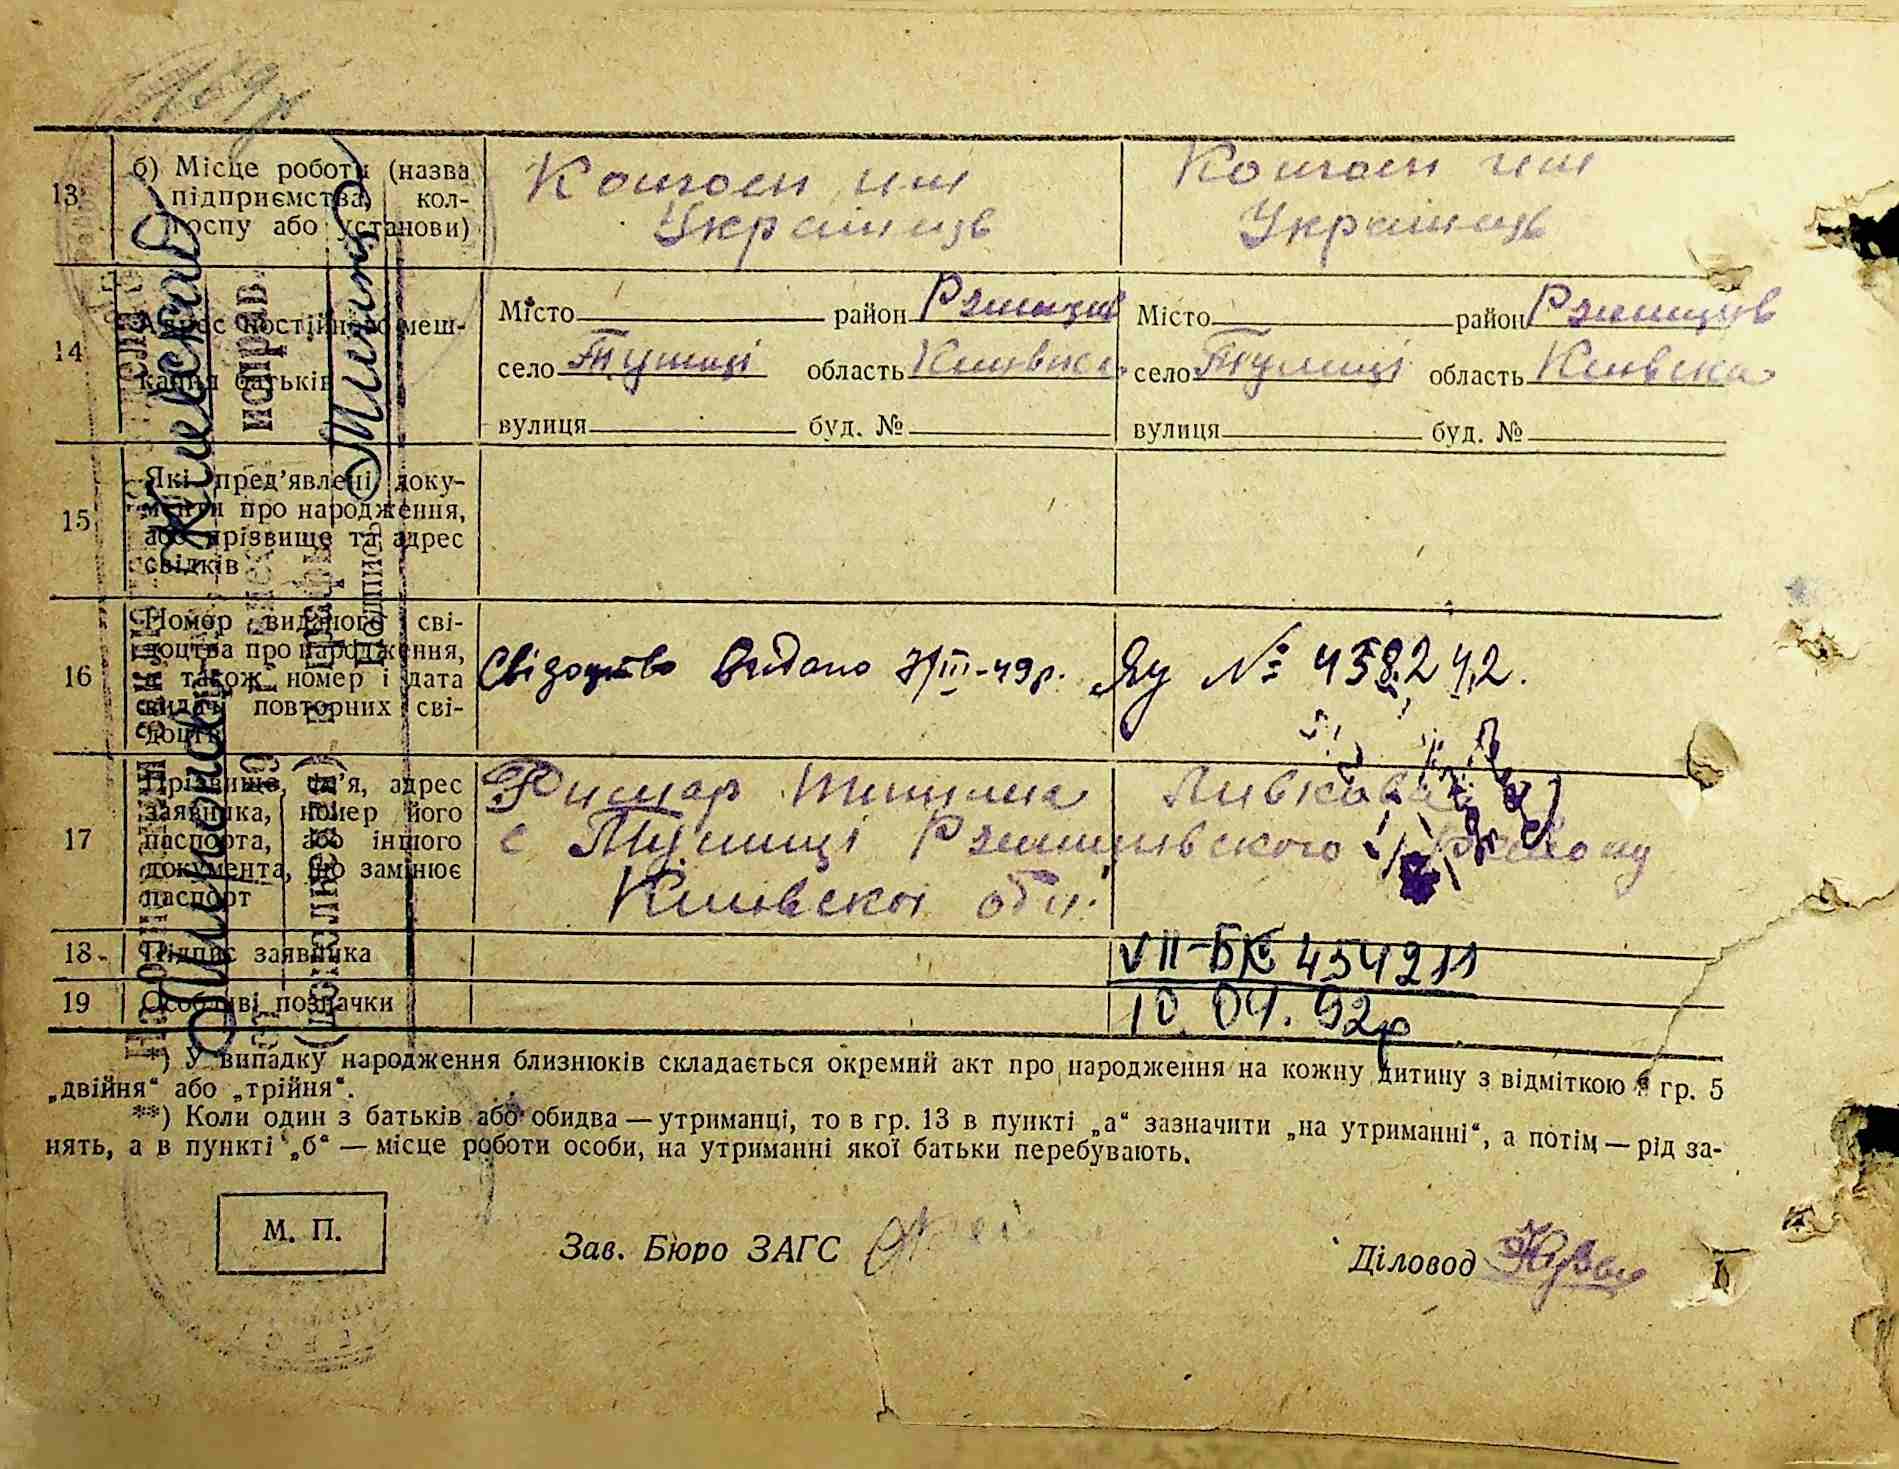 13 б) Місце роботи (назва
підприємства, кол-
госпу або установи)
Колгосп им Колгосп им
14 Адрес постійного меш-
кання батьків
Місто район Ржищів Місто район Ржищів
село Тулинці область Київска село Тулинці область Київска
вулиця буд. № вулиця буд. №
15 Які пред’явлені доку-
менти про народження,
або прізвище та адрес
свідків
16 Номер виданого сві-
доцтва про народження,
а також номер і дата
видачі повторних сві-
доцтв
Свідоцтво видано 7/III-49р. № 458242.
17 Прізвище, ім’я, адрес
заявника, номер його
паспорта, або іншого
документа, що замінює
паспорт
Римар
с Тулинці Ржищивского Району
Киівскоі обл.
18 Підпис заявника
VII-БК 454211
19 Особливі позначки
10.04.92р
*) У випадку народження близнюків складається окремий акт про народження на кожну дитину з відміткою в гр. 5
„двійня“ або „трійня“.
**) Коли один з батьків або обидва — утриманці, то в гр. 13 в пункті „а“ зазначити „на утриманні“, а потім — рід за-
нять, а в пункті „б“ — місце роботи особи, на утриманні якої батьки перебувають.
М. П.
Зав. Бюро ЗАГС
Діловод
исправ.
Подпись